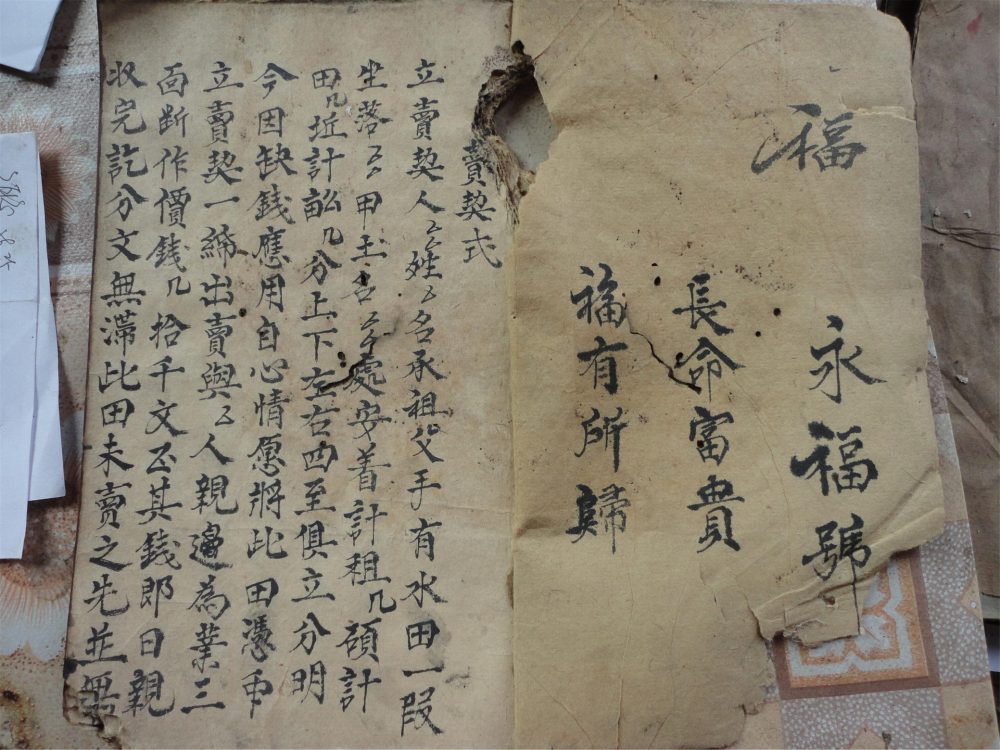 福
永福號
長命富貴
福有所歸
賣契式
立賣契人厶姓厶名承祖父手有水田一段
坐落厶甲土名厶處安着計租几碩計
田几坵計畝几分上下左右四至俱立分明
今因缺錢應用自心情愿將此田憑中
立賣契一締出賣與厶人親邊為業三
面断作價錢几拾千文正其錢即日親
收完訖分文無滯此田未賣之先並無